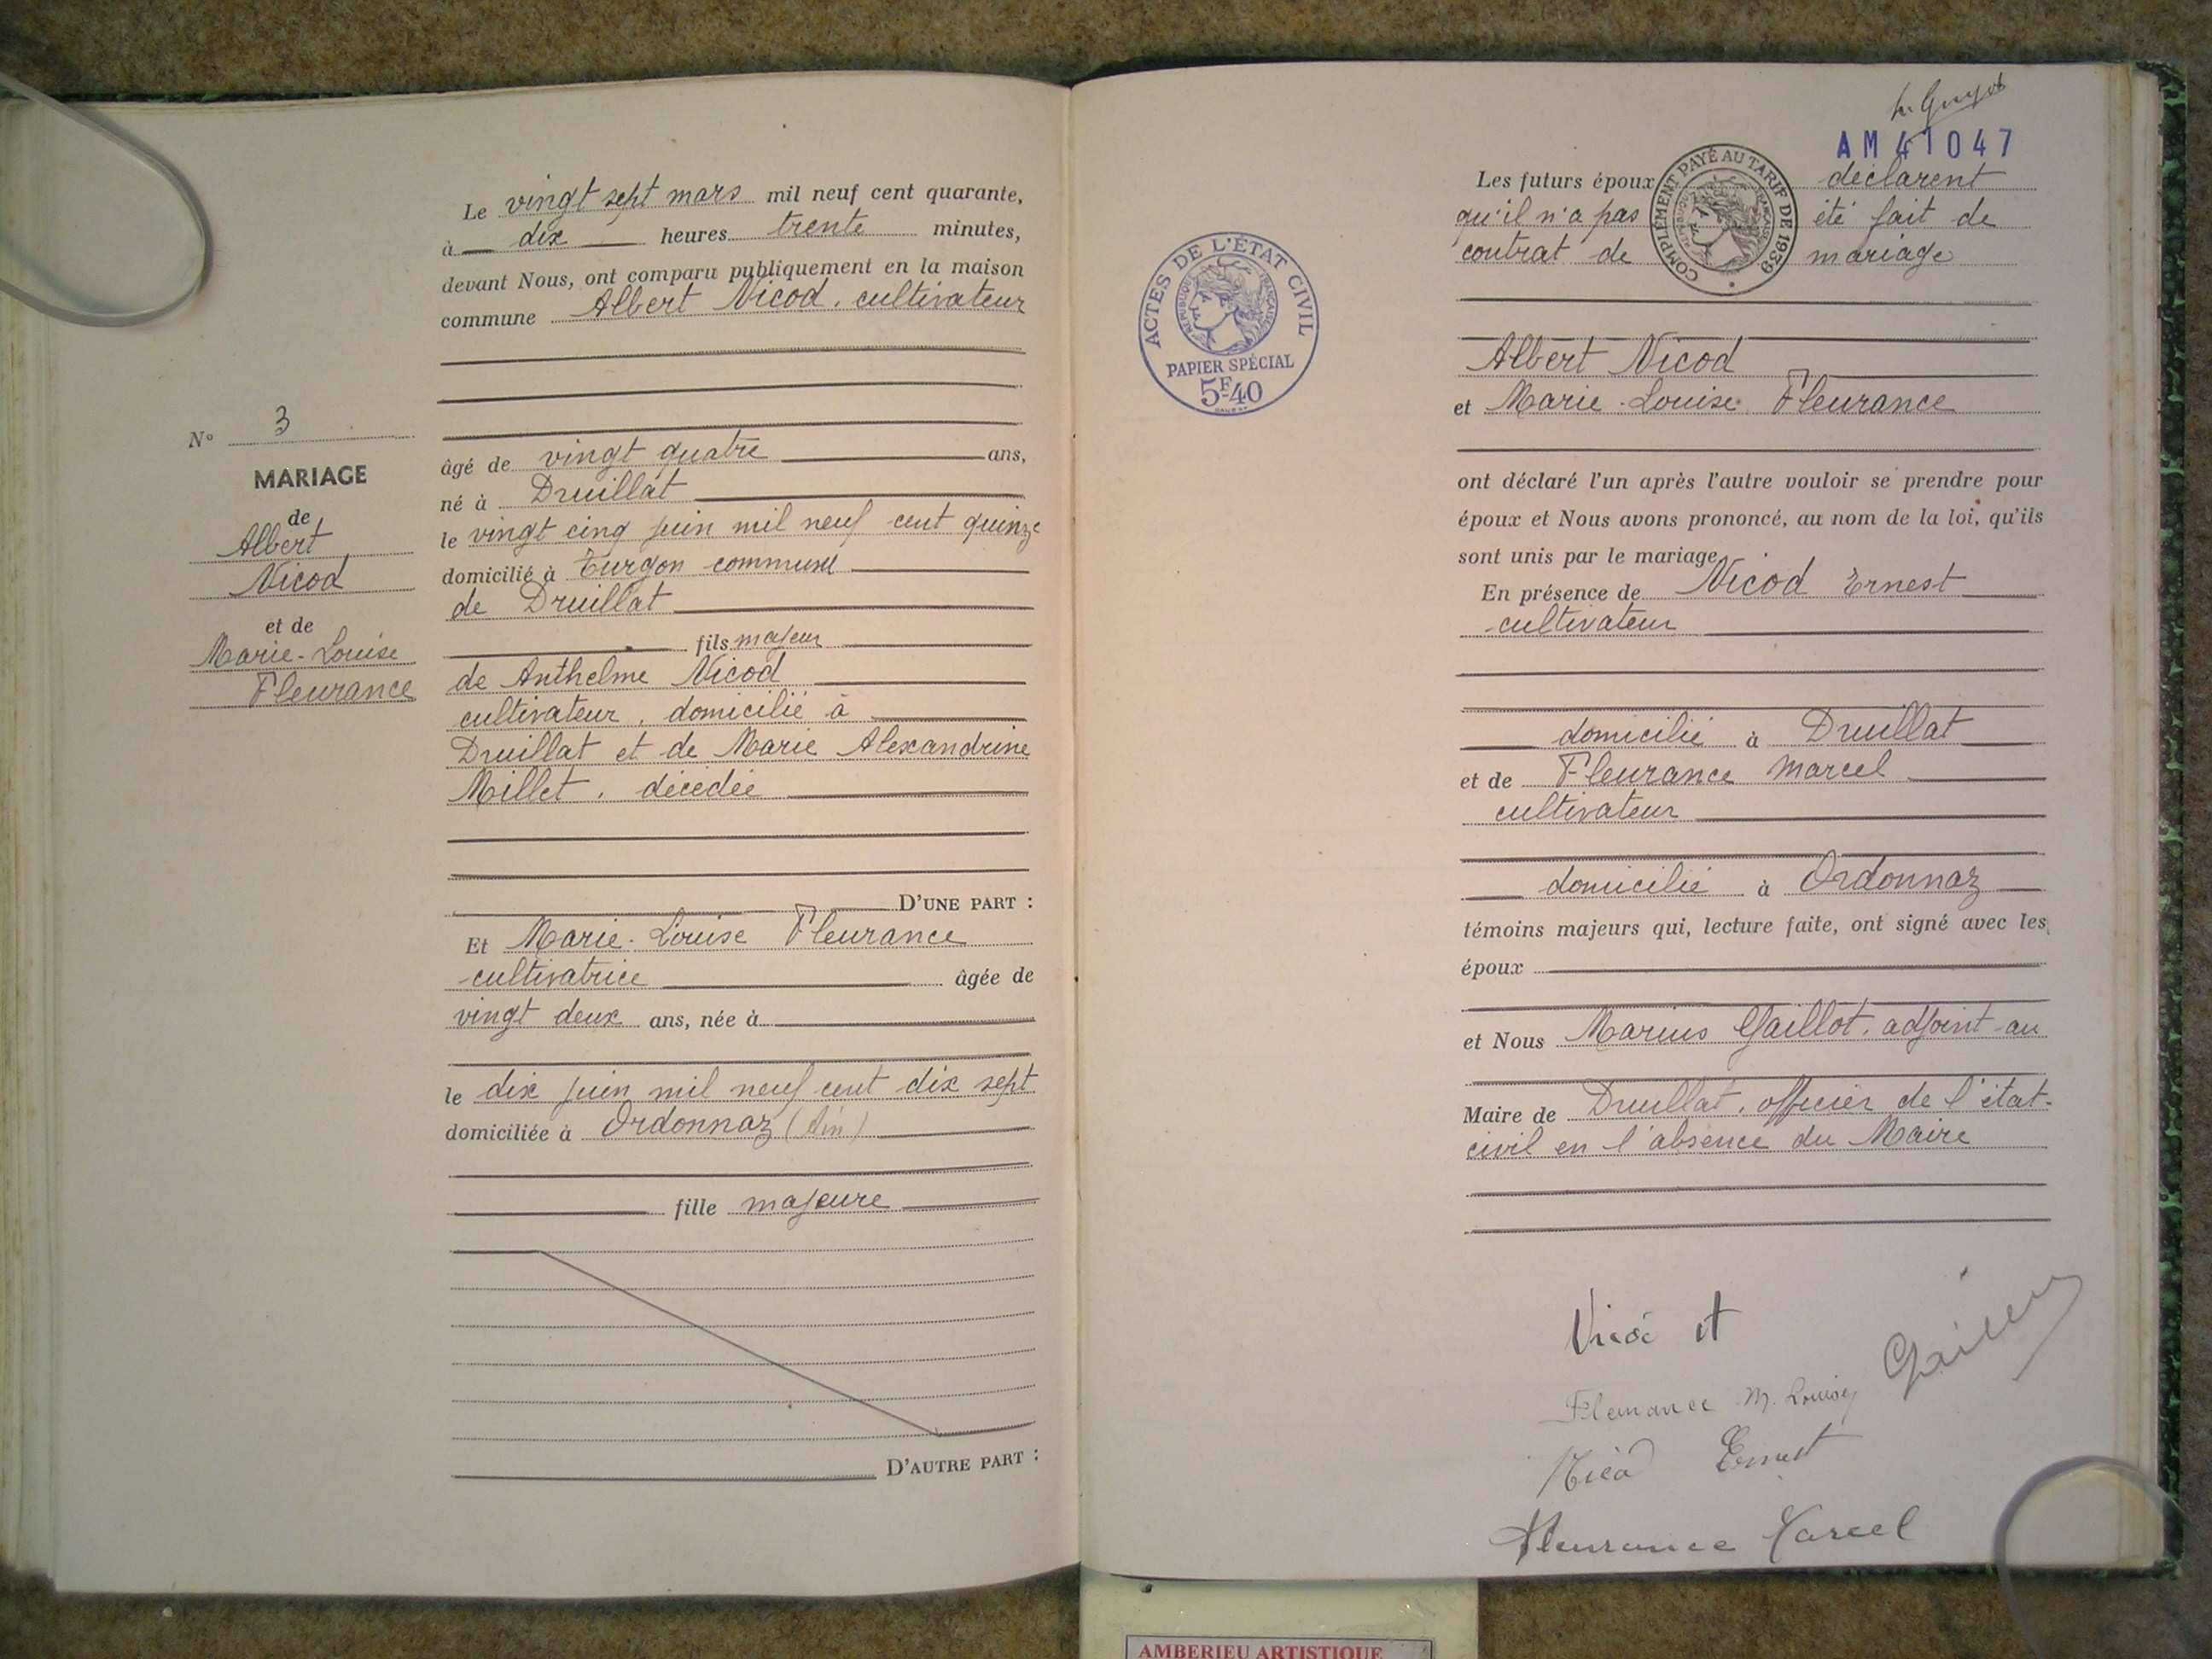 N° 3
MARIAGE
de
Albert
Nicod
et de
Marie-Louise
Fleurance
Le vingt sept mars mil neuf cent quarante,
à dix heures trente minutes,
devant Nous, ont comparu publiquement en la maison
commune Albert Nicod, cultivateur
âgé de vingt quatre ans,
né à Druillat
le vingt cinq juin mil neuf cent quinze
domicilié à Turgon commune
de Druillat
fils majeur
de Anthelme Nicod
cultivateur, domicilié à
Druillat et de Marie Alexandrine
Millet, décédée
D'UNE PART :
Et Marie-Louise Fleurance
cultivatrice âgée de
vingt deux ans, née à
le dix juin mil neuf cent dix sept
domiciliée à Ordonnaz (Ain)
fille majeure
D'AUTRE PART :
ACTES DE L'ÉTAT CIVIL
RÉPUBLIQUE FRANÇAISE
PAPIER SPÉCIAL
5F40
AM 41047
COMPLÉMENT PAYÉ AU TARIF DE 1939
RÉPUBLIQUE FRANÇAISE
Les futurs époux déclarent
qu'il n'a pas été fait de
contrat de mariage
Albert Nicod
et Marie-Louise Fleurance
ont déclaré l'un après l'autre vouloir se prendre pour
époux et Nous avons prononcé, au nom de la loi, qu'ils
sont unis par le mariage,
En présence de Nicod Ernest
cultivateur
domicilié à Druillat
et de Fleurance Marcel
cultivateur
domicilié à Ordonnaz
témoins majeurs qui, lecture faite, ont signé avec les
époux
et Nous Marius Gaillot, adjoint au
Maire de Druillat, officier de l'état-
civil en l'absence du Maire
Fleurance M. Louise
Nicod Ernest
Fleurance Marcel
AMBERIEU ARTISTIQUE